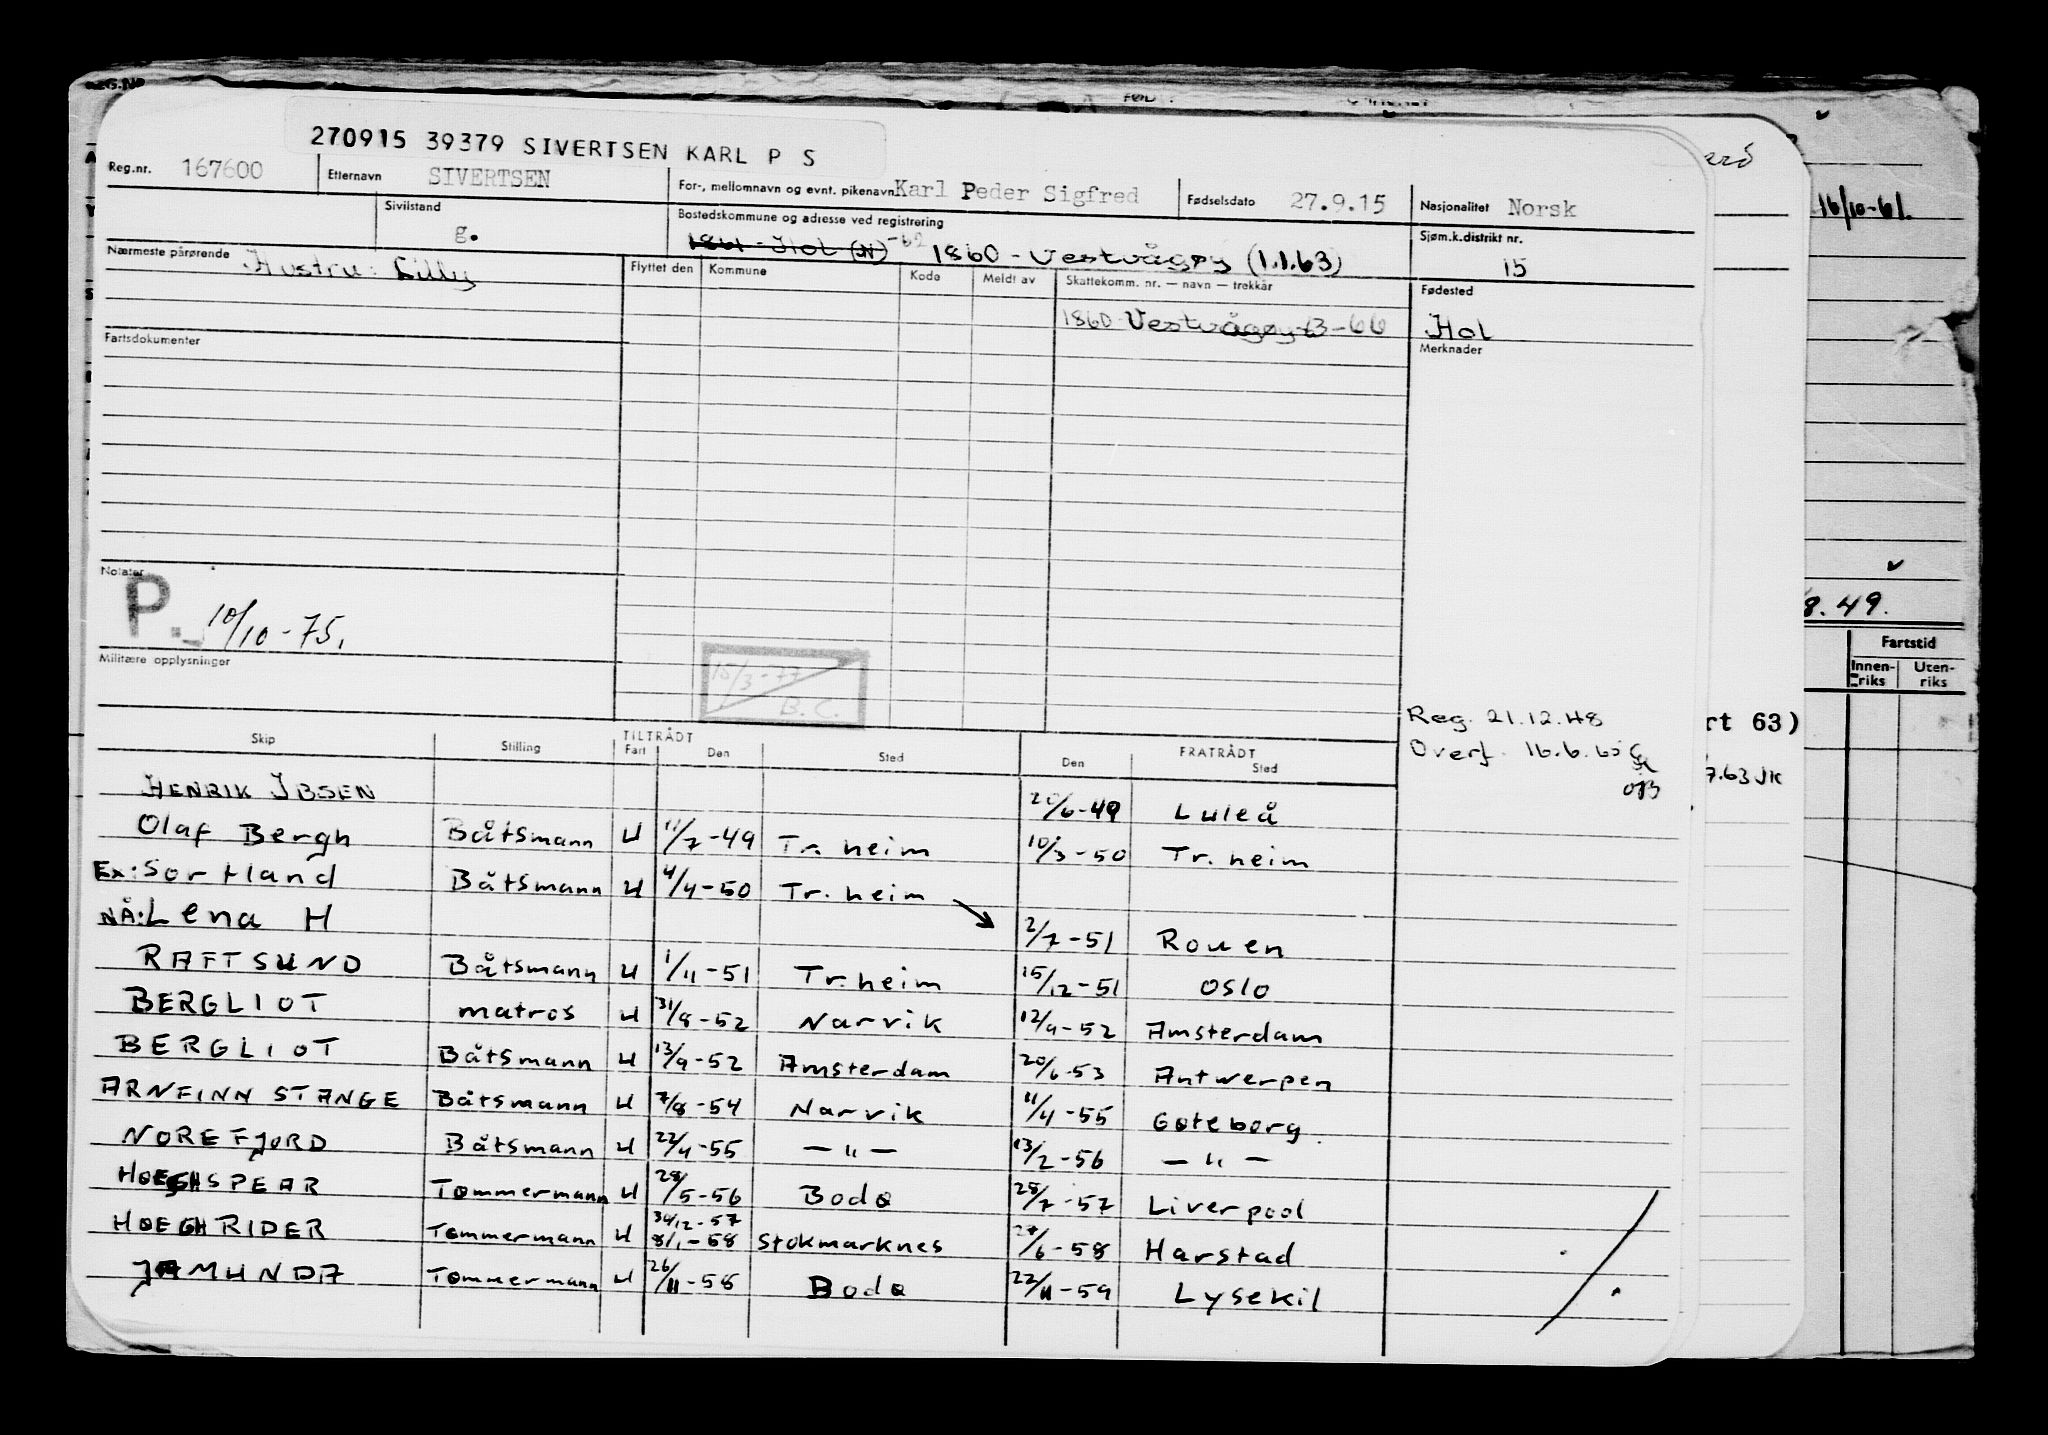 270915 39379 SIVERTSEN KARL P S
Reg.nr. 167600 Etternavn SIVERTSEN For-, mellomnavn og evnt. pikenavn Karl Peder Sigfred Fødselsdato 27.9.15 Nasjonalitet Norsk
Sivilstand g. Bostedskommune og adresse ved registrering 1861 - Hol (N) -62 1860 - Vestvågøy (1.1.63) Sjøm.k.distrikt nr. 15
Nærmeste pårørende Hustru: Lilly Flyttet den Kommune Kode Meldt av Skattekomm. nr. — navn — trekkår Fødested
1860 Vestvågøy 63-66 Hol
Fartsdokumenter Merknader
Notater
P. 10/10-75.
Militære opplysninger
15/3-77
B.C.
Reg. 21.12.48
Overf. 16.6.65
Skip Stilling TILTRÅDT Fart Den Sted FRATRÅDT Den Sted
HENRIK IBSEN 20/6-49 Luleå
Olaf Bergh Båtsmann U 11/7-49 Tr. heim 10/3-50 Tr. heim
Ex: Sortland Båtsmann U 4/4-50 Tr. heim
NÅ: Lena H 2/7-51 Rouen
RAFTSUND Båtsmann U 1/11-51 Tr. heim 15/12-51 Oslo
BERGLIOT matros U 31/8-52 Narvik 12/9-52 Amsterdam
BERGLIOT Båtsmann U 13/9-52 Amsterdam 20/6-53 Antwerpen
ARNFINN STANGE Båtsmann U 7/8-54 Narvik 11/4-55 Gøteborg
NOREFJORD Båtsmann U 22/4-55 — " — 13/2-56 — " —
HOEGH SPEAR Tømmermann U 28/5-56 Bodø 28/7-57 Liverpool
HOEGH RIDER Tømmermann U 30/12-57 8/1-58 Stokmarknes 27/6-58 Harstad
JAMUNDA Tømmermann U 26/11-58 Bodø 22/11-59 Lysekil
16/10-61.
8.49.
Fartstid
Innenriks Utenriks
rt 63)
7.63 JK